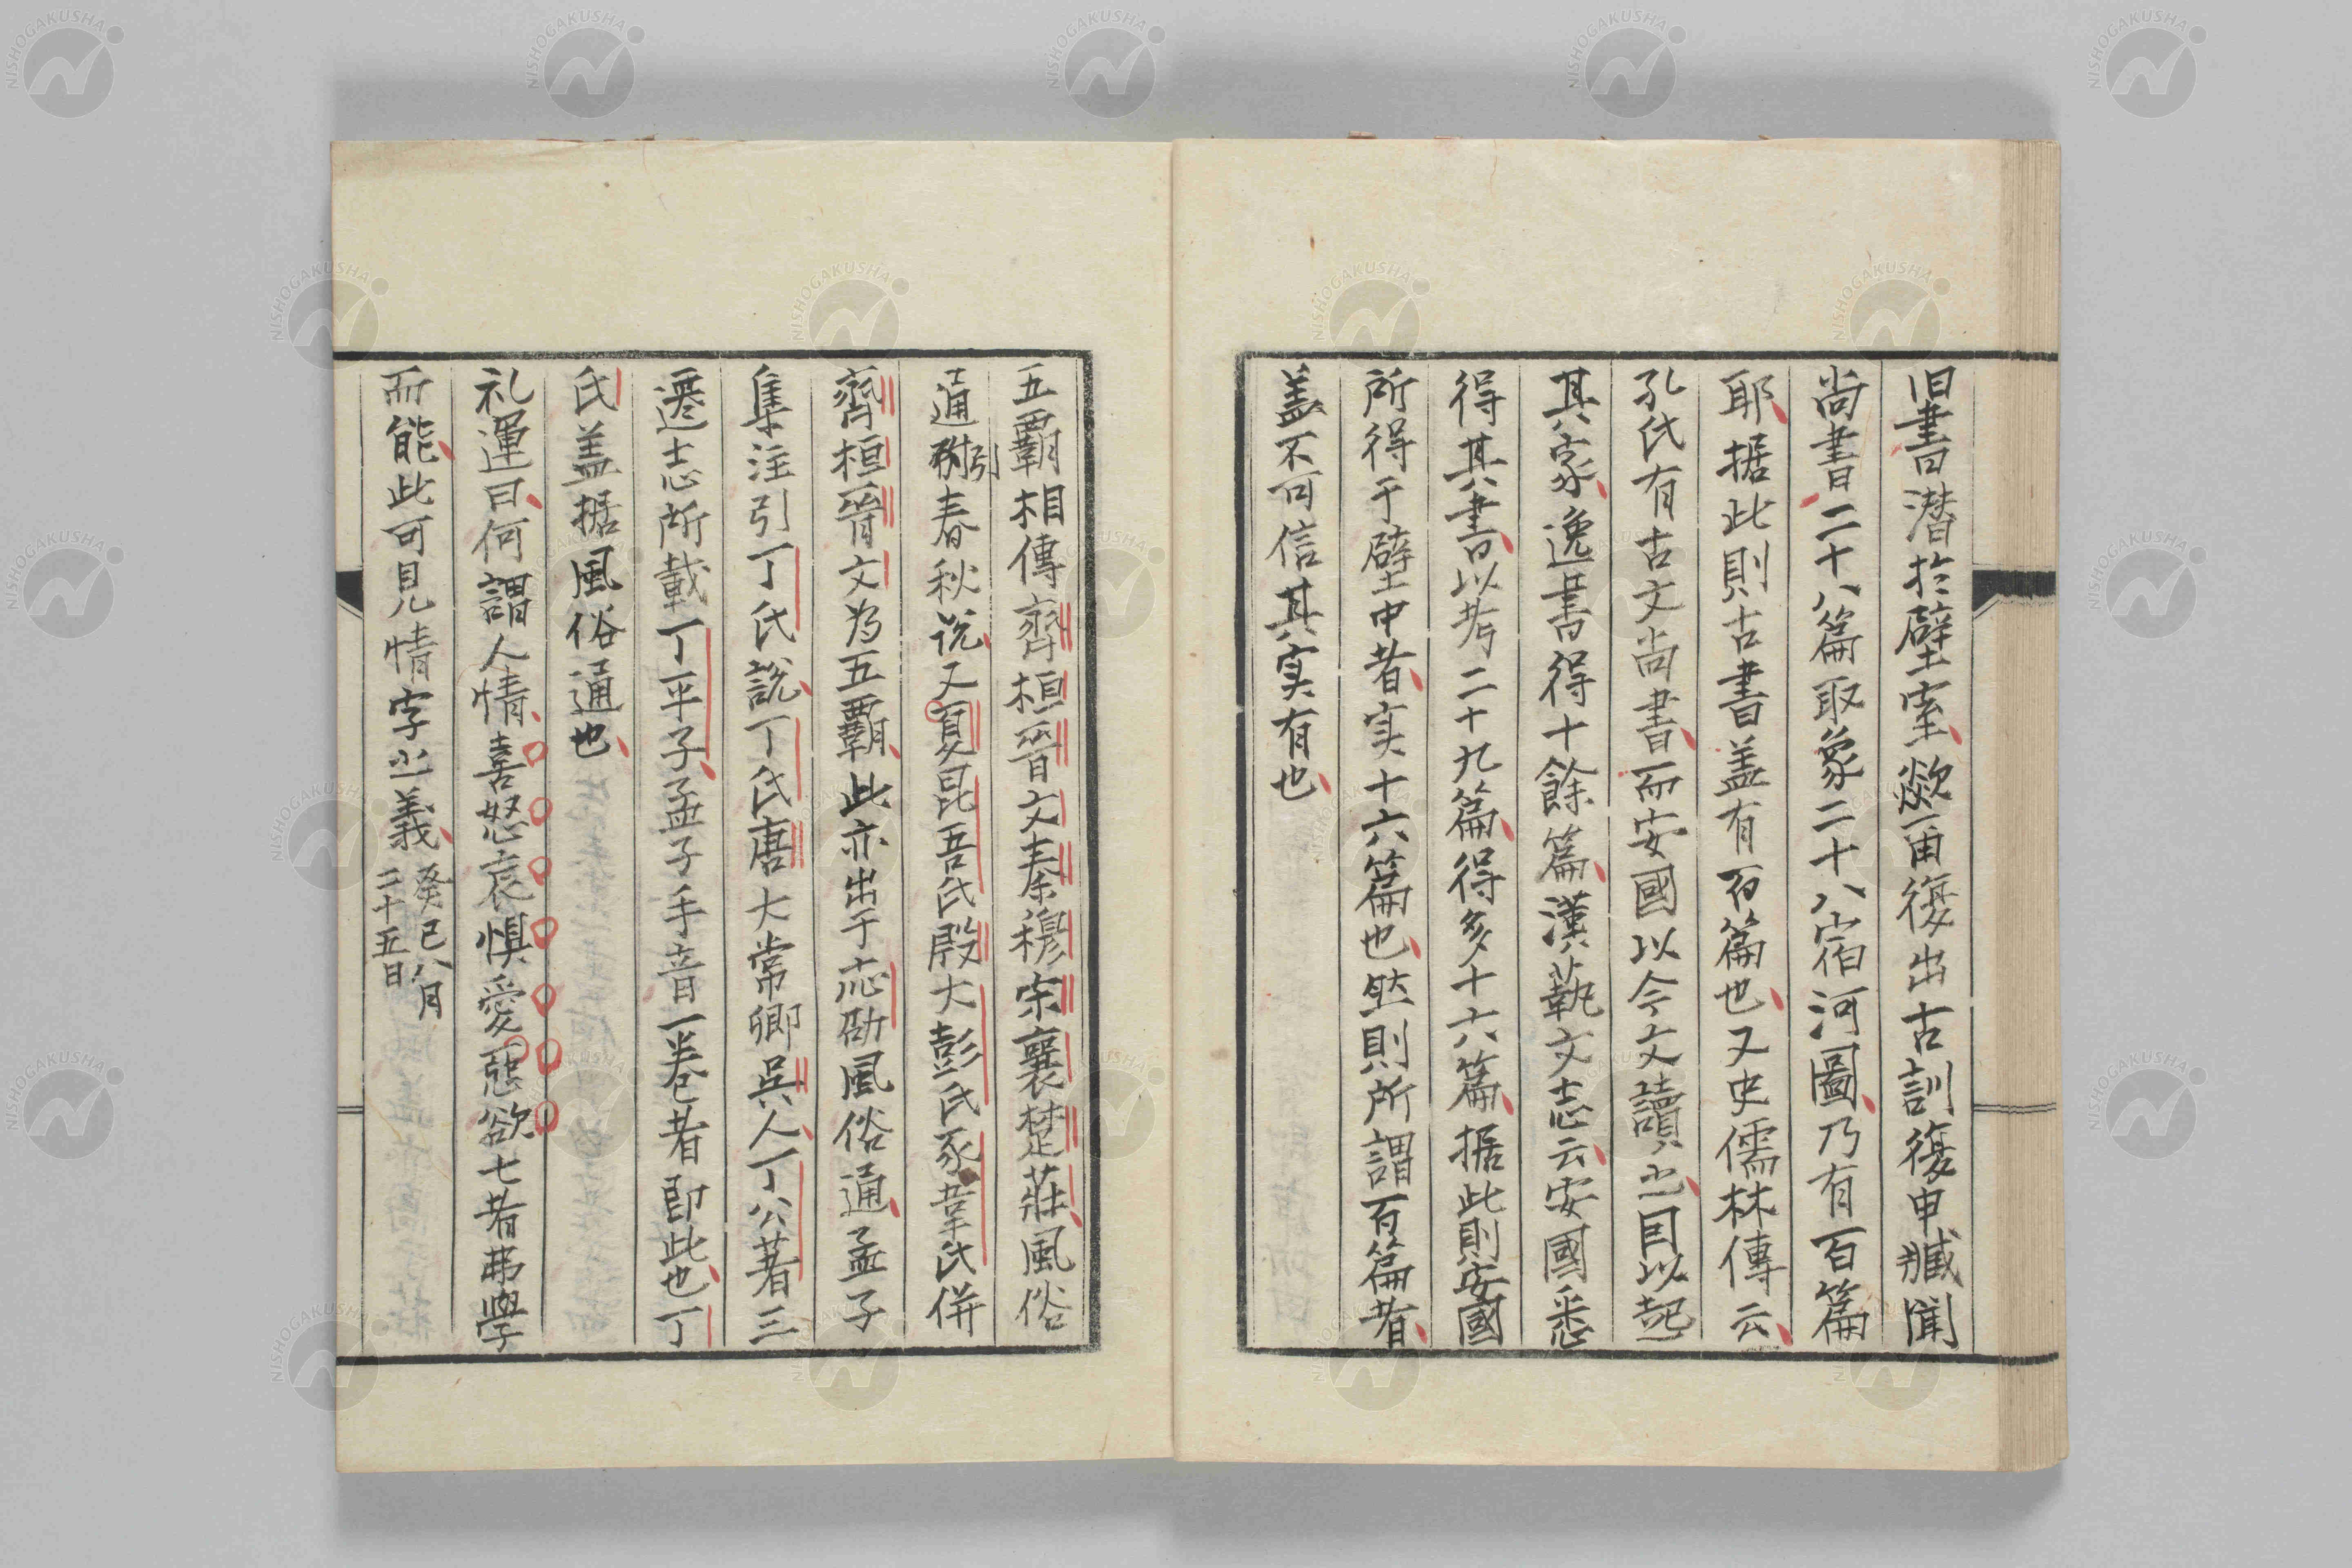 旧書潜於壁室歘爾復出古訓復申臧聞
尚書二十八篇取象二十八宿河圖乃有百篇
耶据此則古書盖有百篇也又史儒林傳云
孔氏有古文尚書而安國以今文讀之因以起
其家逸書得十餘篇漢藝文志云安國悉
得其書以考二十九篇得多十六篇据此則安國
所得于壁中者实十六篇也然則所謂百篇者
盖不可信其实有也
五霸相傳齊桓晉文秦穆宋襄楚莊風俗
通引春秋说又夏昆吾氏殷大彭氏豕韋氏併
齊桓晉文为五霸此亦出于应劭風俗通孟子
集注引丁氏說丁氏唐大常卿吳人丁公著三
遷志所載丁平子孟子手音一卷者即此也丁
氏盖据風俗通也
礼運曰何謂人情喜怒哀惧愛惡欲七者弗學
而能此可見情字之義
癸巳八月
二十五日
NISHOGAKUSHA